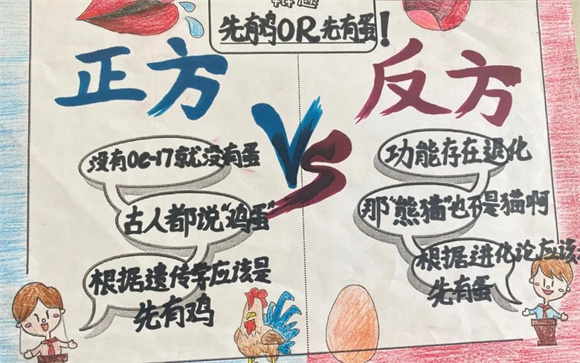 先有鸡OR先有蛋！
正方
反方
VS
没有OC-17就没有蛋
古人都说“鸡蛋”
根据遗传学应该是
先有鸡
功能存在退化
那“熊猫”也不是猫啊
根据进化论应该
先有蛋